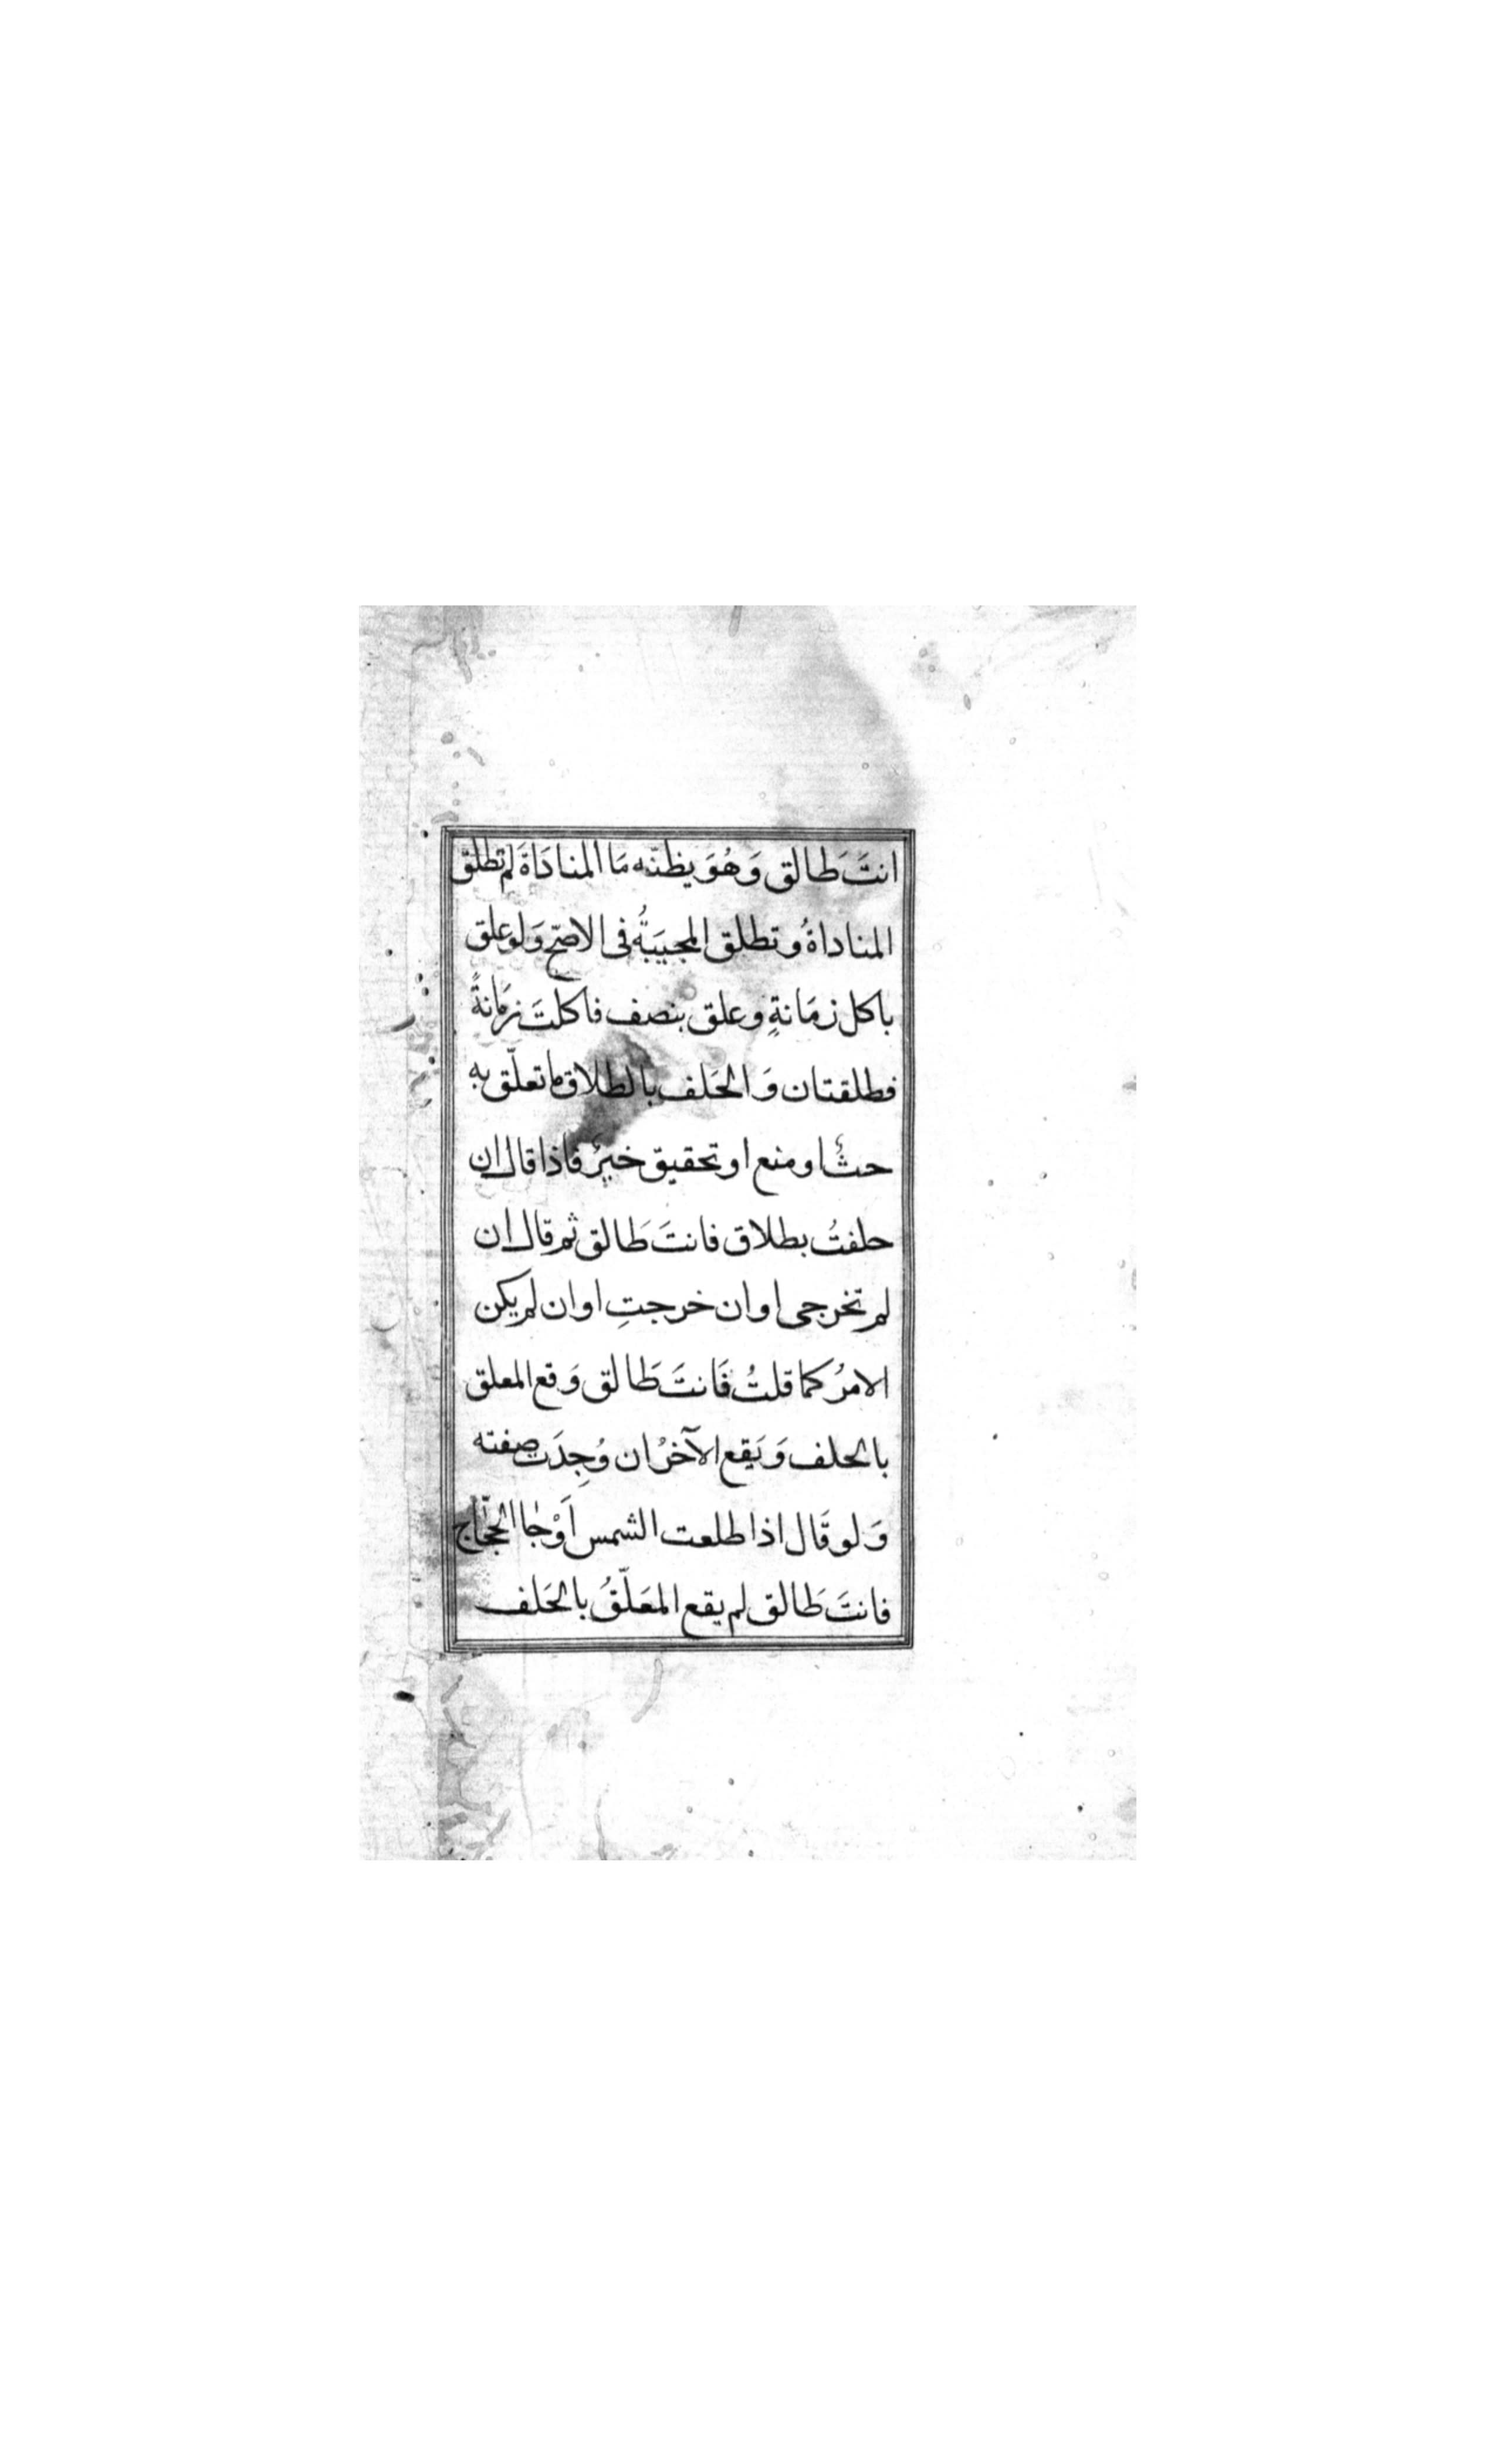 انتَ طَالق وَهُوَ يظنّه مَا المنادَاةَ لم تطلق
المناداةُ وتطلق المجيبَةُ فى الاصحّ وَلو علق
باكل زمَانةٍ وعلق بنصف فاكلتَ زمَانةً
فطلقتان وَالحَلف بالطلاق ما تعلّق به
حثٌ او منع او تحقيق خبرٍ فاذا قال ان
حلفتُ بطلاق فانتَ طَالق ثم قال ان
لم تخرجى او ان خرجتِ او ان لم يكن
الامرُ كما قلتُ فَانتَ طَالق وَقع المعلق
بالحلف وَيَقع الآخرُ ان وُجِدَت صفته
وَلو قَال اذا طلعت الشمس اَوْ جَا الحجّاج
فانتَ طَالق لم يقع المعَلّقُ بالحَلف